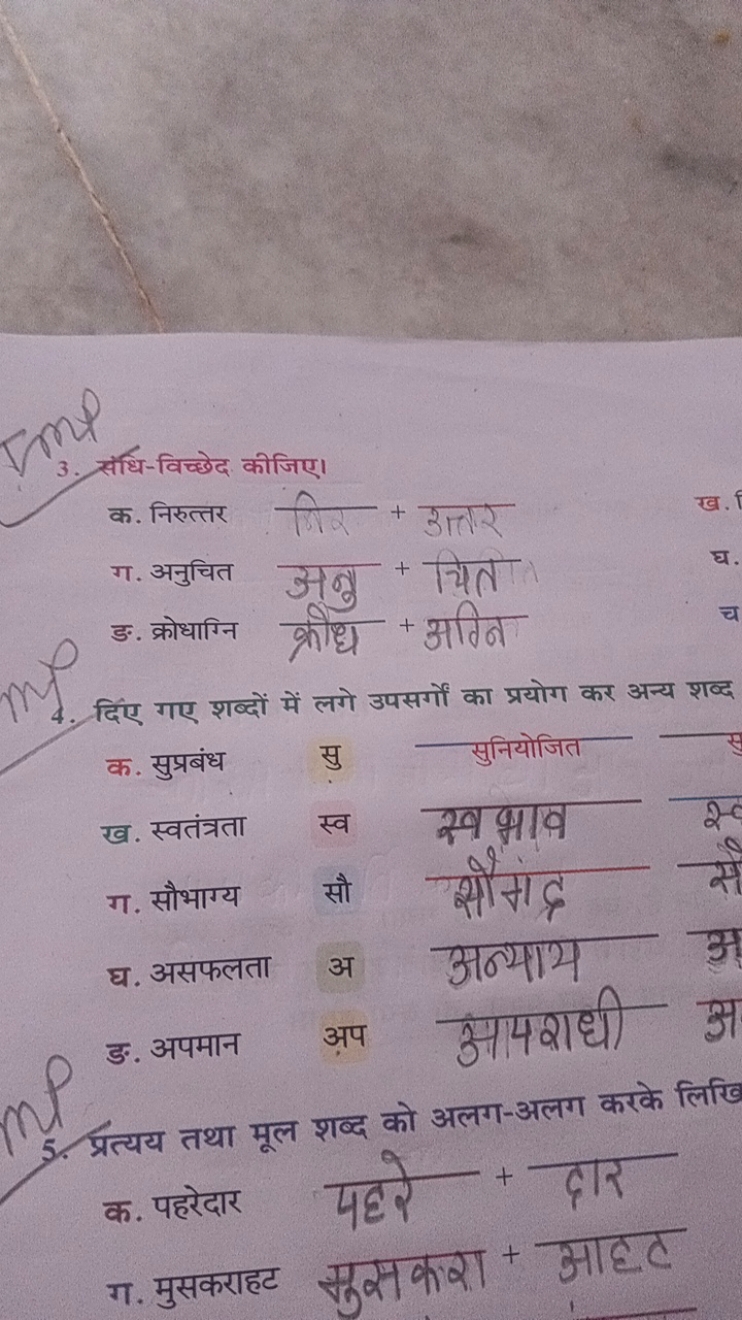 Imp
3. संधि-विच्छेद कीजिए।
क. निरुत्तर निर + उत्तर ख.
ग. अनुचित अनु + चित घ.
ङ. क्रोधाग्नि क्रौध + अग्नि च
Imp
4. दिए गए शब्दों में लगे उपसर्गों का प्रयोग कर अन्य शब्द
क. सुप्रबंध सु सुनियोजित सु
ख. स्वतंत्रता स्व स्वभाव स्व
ग. सौभाग्य सौ सौ
घ. असफलता अ अन्याय अ
ङ. अपमान अप आपराधी अ
Imp
5. प्रत्यय तथा मूल शब्द को अलग-अलग करके लिखि
क. पहरेदार पहरे + दार
ग. मुसकराहट मुसकरा + आहट